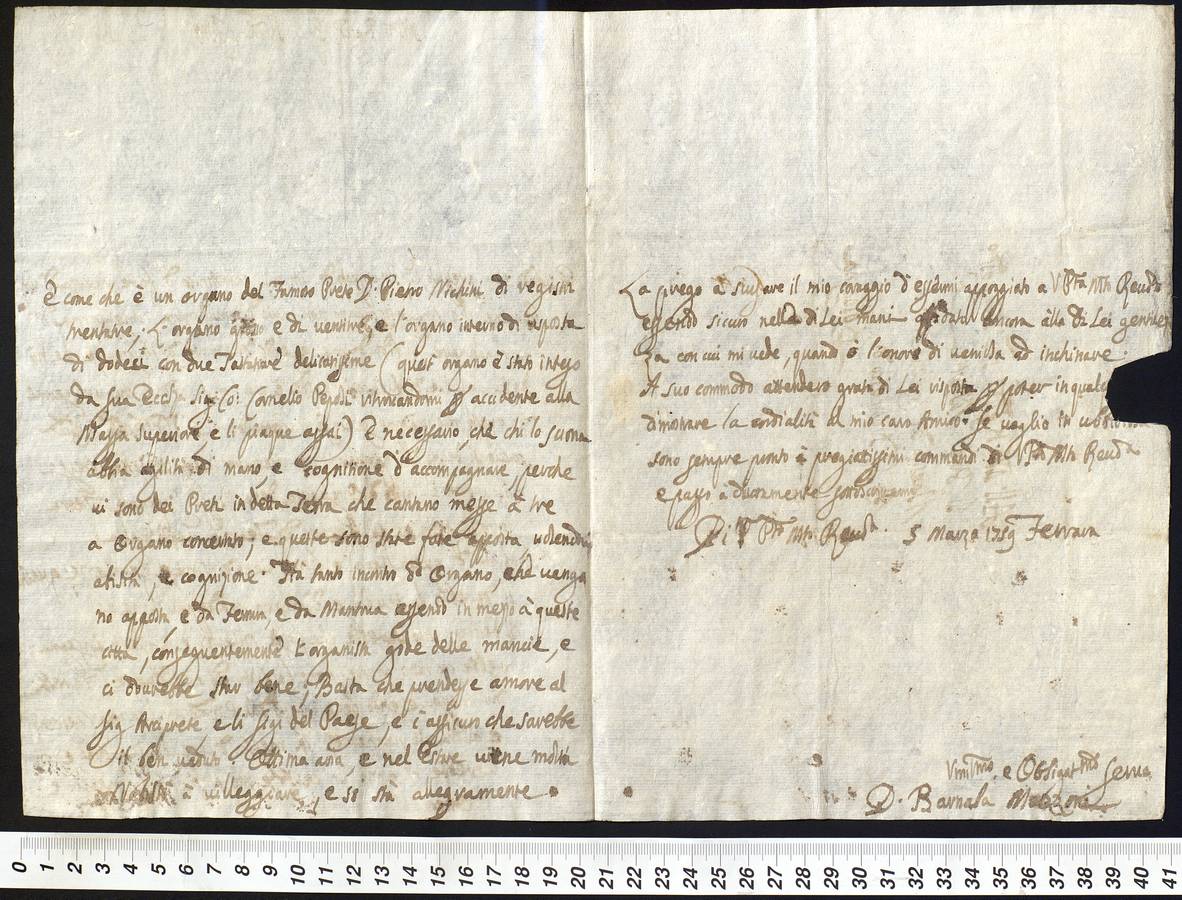 È come che è un organo del Famoso Prete D. Pietro Nichini di registri
mentature, L'organo e di ventitre, e l'organo interno di risposta
di dodeci con due Tastature delicatissime (quest'organo è stato inteso
da sua Ecc.za Sig. Co: Cornelio Pepoli ritrovandomi per accidente alla
Massa superiore e li piaque assai) È necessario, che chi lo suona
abbia agilità di mano, e cognitione d'accompagnare, perche
vi sono dei Preti in detta Terra che cantano messe à tre
a Organo concertato, e queste sono state fate apposta volendovi
abilità, e cognizione. Hà tanto incontro d.o Organo, che venga
no apposta, e da Ferrara, e da Mantova essendo in mezzo à queste
città, conseguentemente l'organista gode delle mancie, e
ci dourebbe star bene, Basta che prendesse amore al
Sig. Arciprete e li Sigi del Paese, e l'assicuro che sarebbe
il ben veduto. Ottima aria, e nel Estate viene molta
Nobiltà à villeggiare, e si stà allegramente.
La prego à scusare il mio coraggio d'essermi appoggiato a V. P.tà M.to Reuda
essendo sicuro nelle di Lei mani guidato ancora alla di Lei gentilez
za con cui mi vede, quando ò l'onore di venirla ad inchinare.
A suo commodo attenderò grata di Lei risposta per poter in qualche
dimostrare la cordialità al mio caro Amico. Se vaglio in ubbidirla
sono sempre pronto à pregiatissimi commandi di V. P.tà M.to Reuda
e passo à
Di V. P.tà M.to Reuda. 5 Marzo 1759 Ferrara
Umilmo, e Obligatmo Servo
D. Barnaba Manzoni